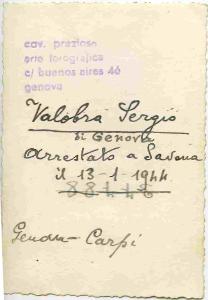 cav. prezioso
arte fotografica
c/ buenos aires 46
genova
Valobra Sergio
di Genova
Arrestato a Savona
il 13-1-1944
Genova - Carpi